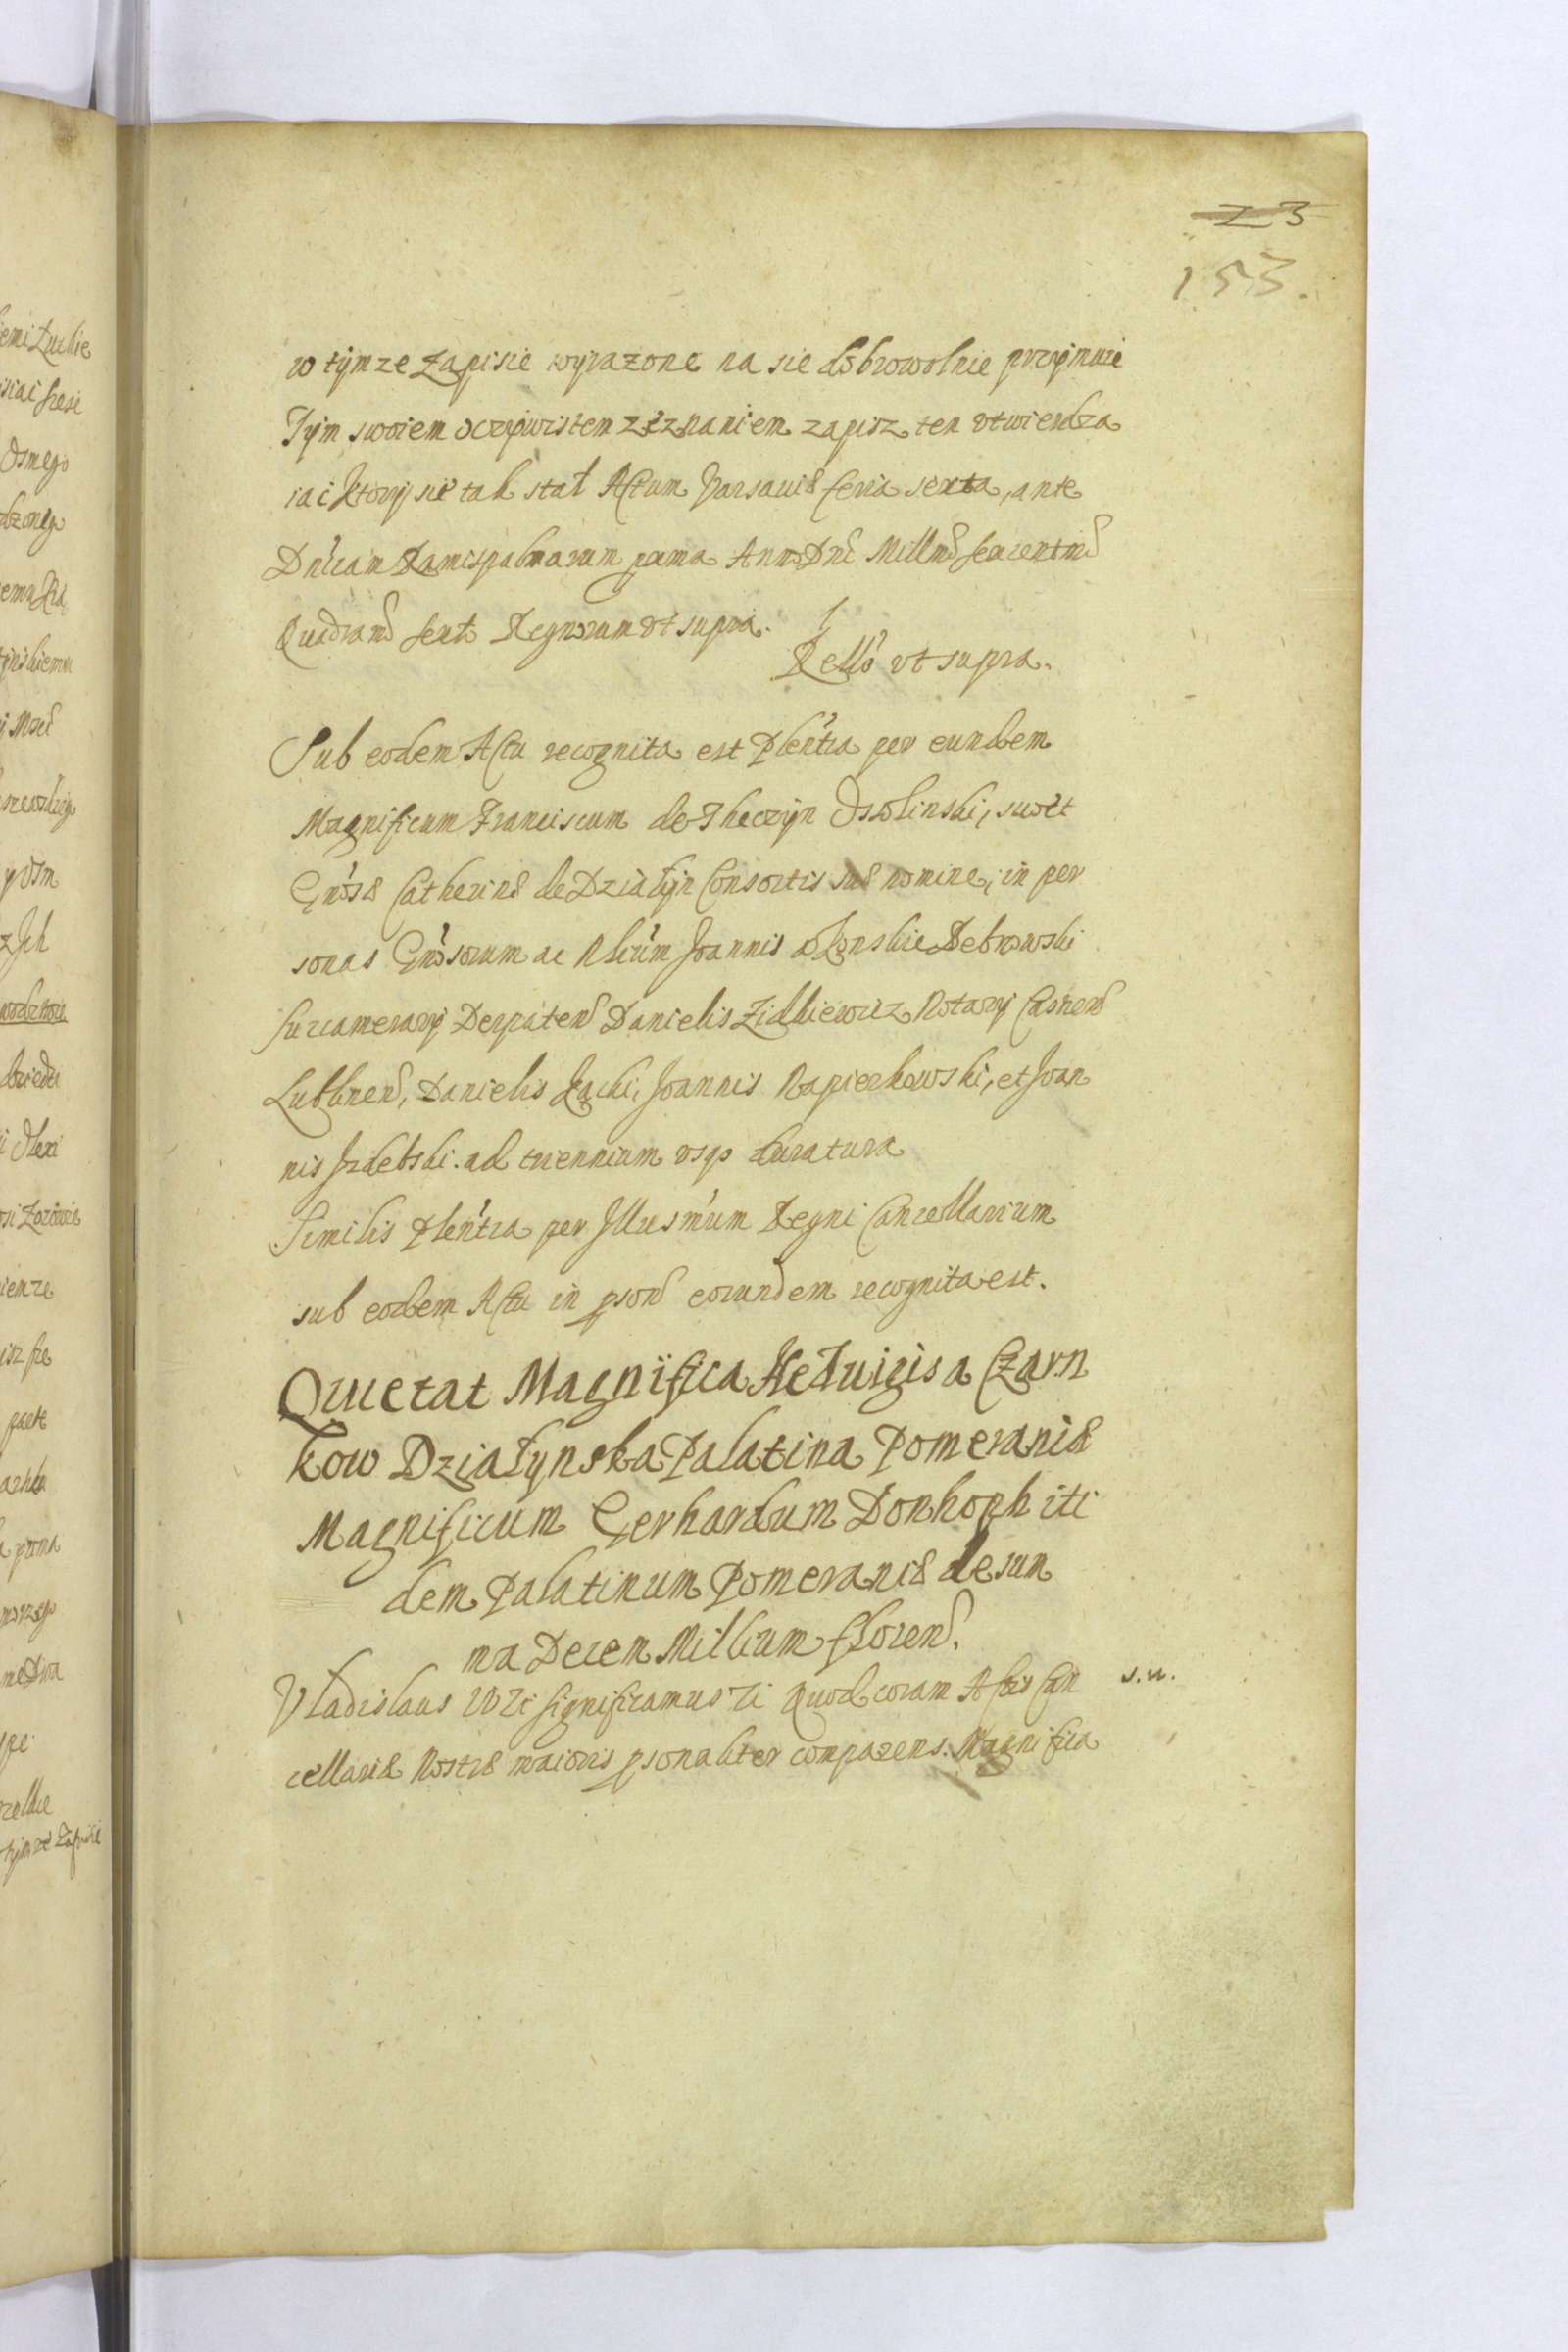 23
153.
w tymze Zapisie wyrazone na sie dobrowolnie przyimuie
Tym swoiem oczywistem zeznaniem zapisz ten utwierdza
iąc ktory sie tak stał Actum Varsauiæ feria sexta, ante
Dnicam Ramispalmarum pxima Anno Dni Millmo sexcentmo
Quadrano sexto Regnorum ut supra.
Rello ut supra.
Sub eodem Actu recognita est Plentia per eundem
Magnificum Franciscum de Theczyn Ossolinski, suo et
Gnosæ Catherinæ de Dziatyn Consortis suæ nomine, in per
sonas Gnosorum ac Nlium Joannis a Debrowski
Succamerary Derpaten Danielis Zidkiewicz Notary Casnen
Lublinen, Danielis Łącki, Joannis Rapierkowski, et Joan
nis Jzdebski. ad triennium usqo duratura
Similis Plentia per Illusmum Regni Cancellarium
sub eodem Actu in pson eorundem recognita est.
Quietat Magnifica Heduigis a Czarn
kow Dziatynska Palatina Pomeraniæ
Magnificum Gerhardum Donhoph iti
dem Palatinum Pomeraniæ de sum
ma Decem Millium floren.
Vladislaus IV Significamus Quod coram Actis Can s.n.
cellariæ Nostræ maioris psonaliter comparens. Magnifica